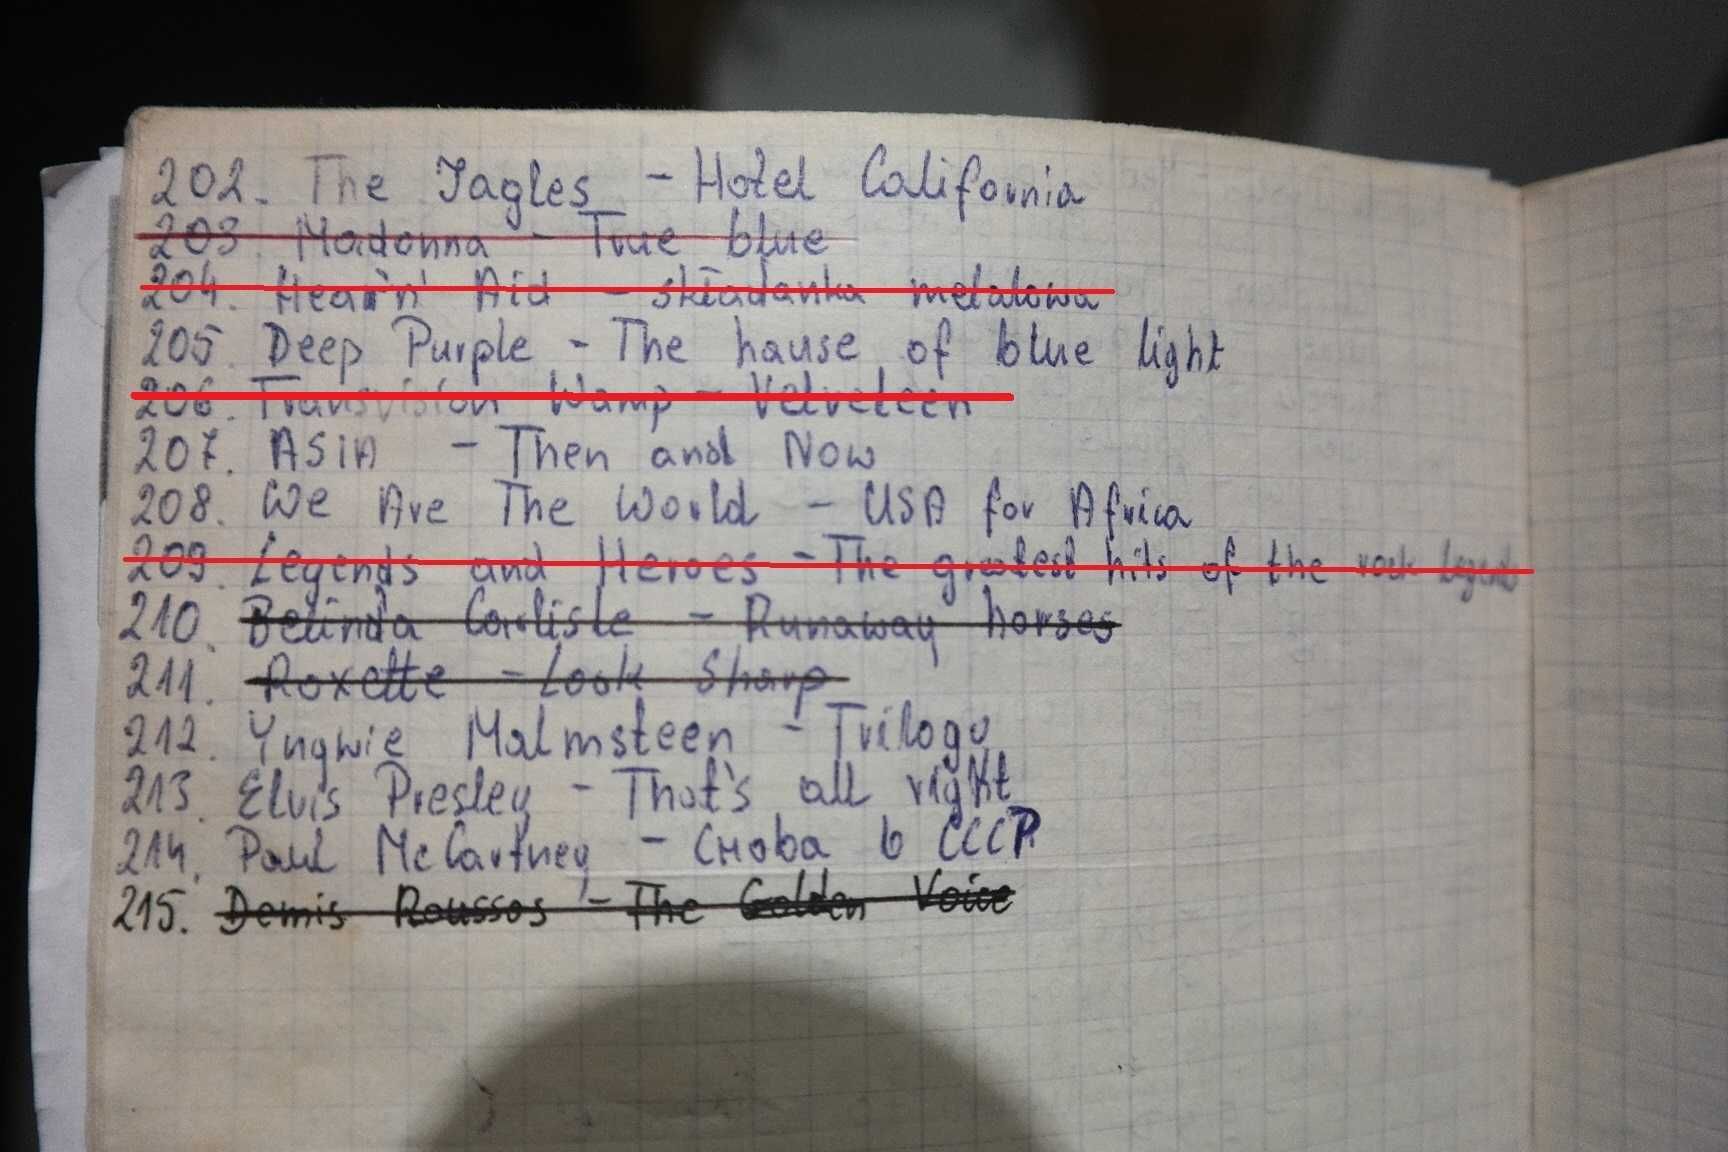 202. The Jagles - Hotel California
203. Madonna - True blue
204. Hear'n' Aid - składanka metalowa
205. Deep Purple - The hause of blue light
206. Transvision Wamp - Velveteen
207. ASiA - Then and Now
208. We Are The World - USA for Africa
209. Legends and Heroes - The greatest hits of the rock legends
210. Belinda Carlisle - Runaway horses
211. Roxette - Look Sharp
212. Yngwie Malmsteen - Trilogy
213. Elvis Presley - That's all right
214. Paul McCartney - Снова в СССР
215. Demis Roussos - The Golden Voice